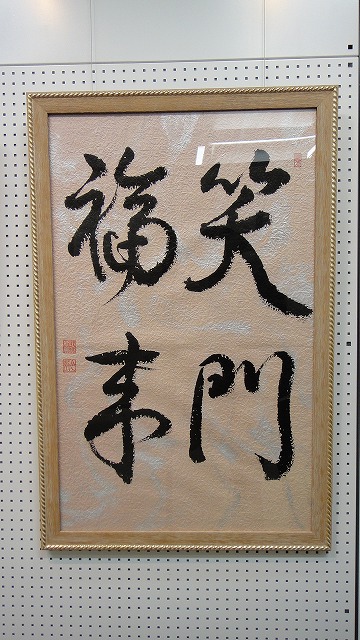 笑門
福来